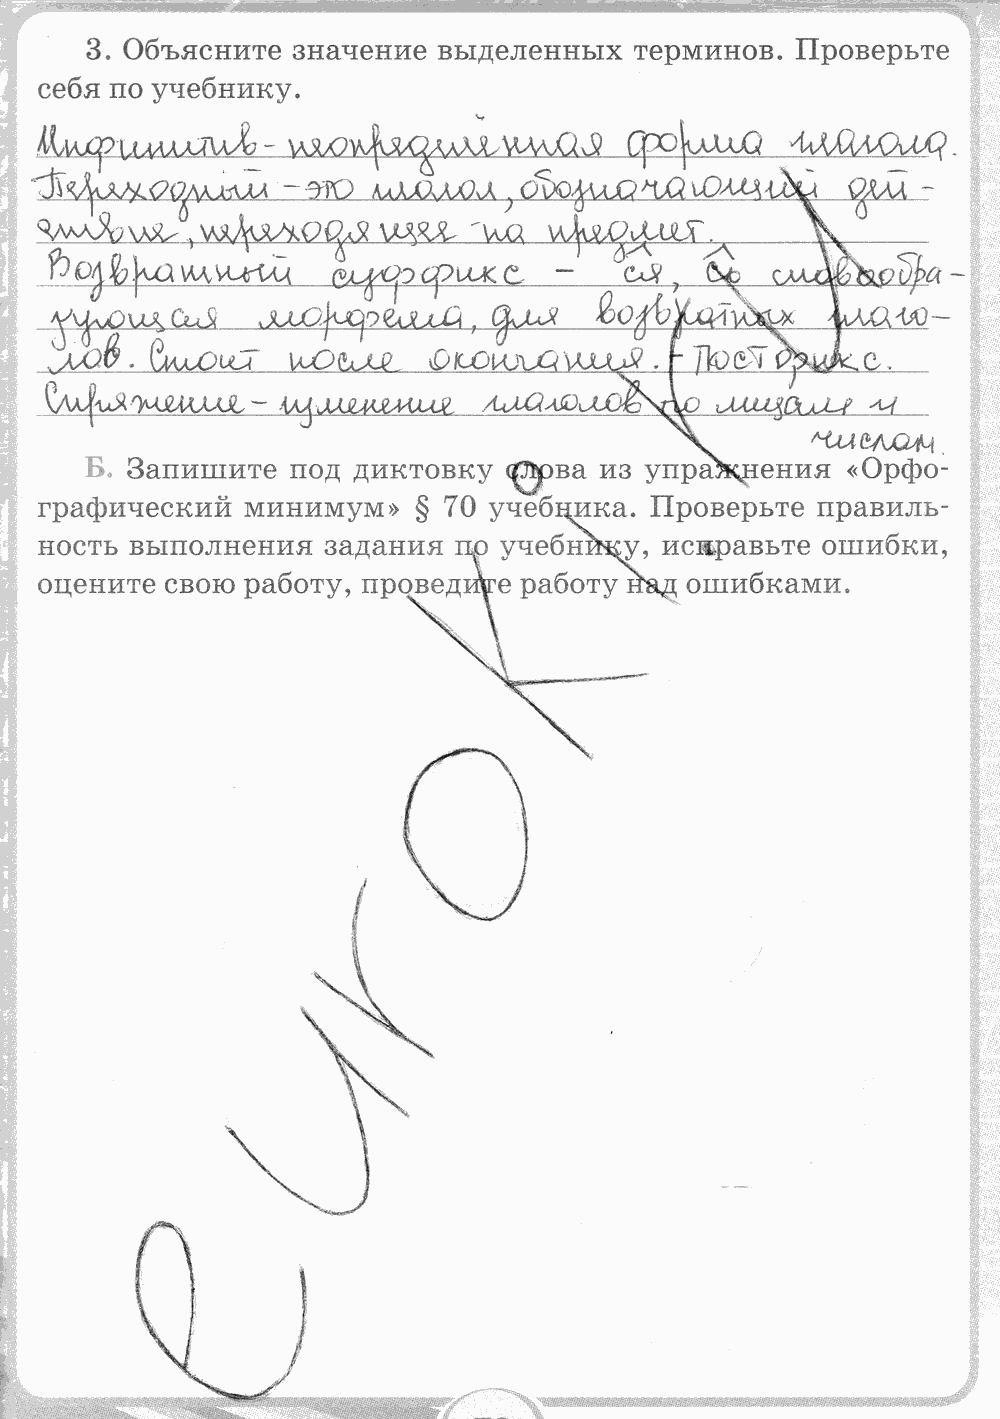 3. Объясните значение выделенных терминов. Проверьте
себя по учебнику.
Инфинитив - неопределённая форма глагола.
Переходный - это глагол, обозначающий дей-
ствие, переходящее на предмет.
Возвратный суффикс - ся, сь словообра-
зующая морфема, для возвратных глаго-
лов. Стоит после окончания. - Постфикс.
Спряжение - изменение глаголов по лицам и
числам.
Б. Запишите под диктовку слова из упражнения «Орфо-
графический минимум» § 70 учебника. Проверьте правиль-
ность выполнения задания по учебнику, исправьте ошибки,
оцените свою работу, проведите работу над ошибками.
euroki.ru